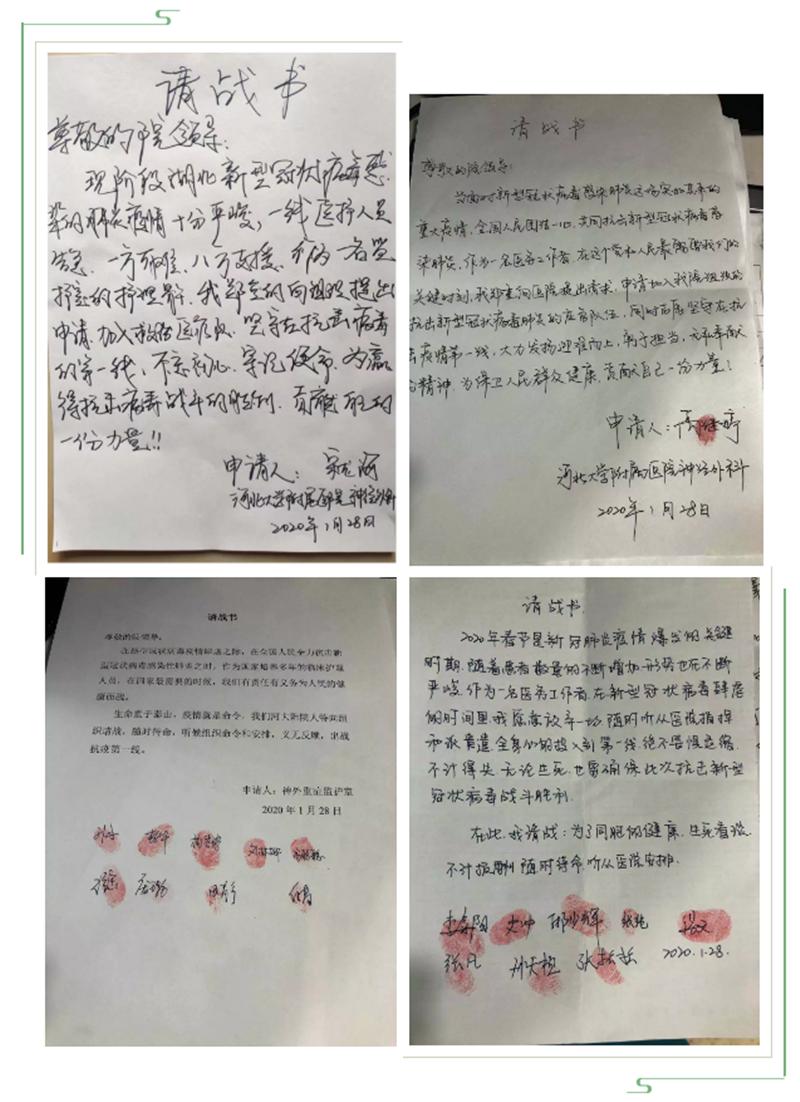 请战书
尊敬的院领导:
现阶段湖北新型冠状病毒感
染的肺炎疫情十分严峻,一线医护人员
告急.一方有难,八方支援.作为一名急
的护理员.我郑重的向组织提出
申请.加入救治医疗队.坚守在抗击病毒
的第一线,不忘初心.牢记使命.为赢
得抗击病毒战斗的胜利.贡献自己的
一份力量!!
申请人:
河北大学附属医院神经外科
2020年1月28日
请战书
尊敬的院领导:
当面对新型冠状病毒感染肺炎这场突如其来的
重大疫情,全国人民团结一心,共同抗击新型冠状病毒感
染肺炎,作为一名医务工作者,在这个党和人民最需要我们的
关键时刻,我郑重向医院提出请求,申请加入我院组织的
抗击新型冠状病毒肺炎的应急队伍,同时也愿坚守在抗
击疫情第一线,大力发扬迎难而上,勇于担当,无私奉献
的精神,为保卫人民群众健康,贡献自己一份力量!
申请人:
河北大学附属医院神经外科
2020年1月28日
请战书
尊敬的院领导:
在新型冠状病毒疫情肆虐之际,在全国人民全力抗击新
型冠状病毒感染性肺炎之时,作为国家培养多年的临床护理
人员,在国家最需要的时候,我们有责任有义务为人民的健
康而战。
生命重于泰山,疫情就是命令,我们河大附院人特向组
织请战,随时待命,听候组织命令和安排,义无反顾,出战
抗疫第一线。
申请人:神外重症监护室
2020年1月28日
请战书
2020年春节是新冠肺炎疫情爆发的关键
时期.随着患者数量的不断增加.形势也在不断
严峻.作为一名医务工作者.在新型冠状病毒肆虐
的时间里.我愿意放弃一切.随时听从医院指挥
和派遣.全身心的投入到第一线.绝不畏惧退缩.
不计得失.无论生死.也要确保此次抗击新型
冠状病毒战斗胜利.
在此.我请战:为了同胞的健康.生死看淡.
不计报酬.随时待命.听从医院安排.
2020.1.28.